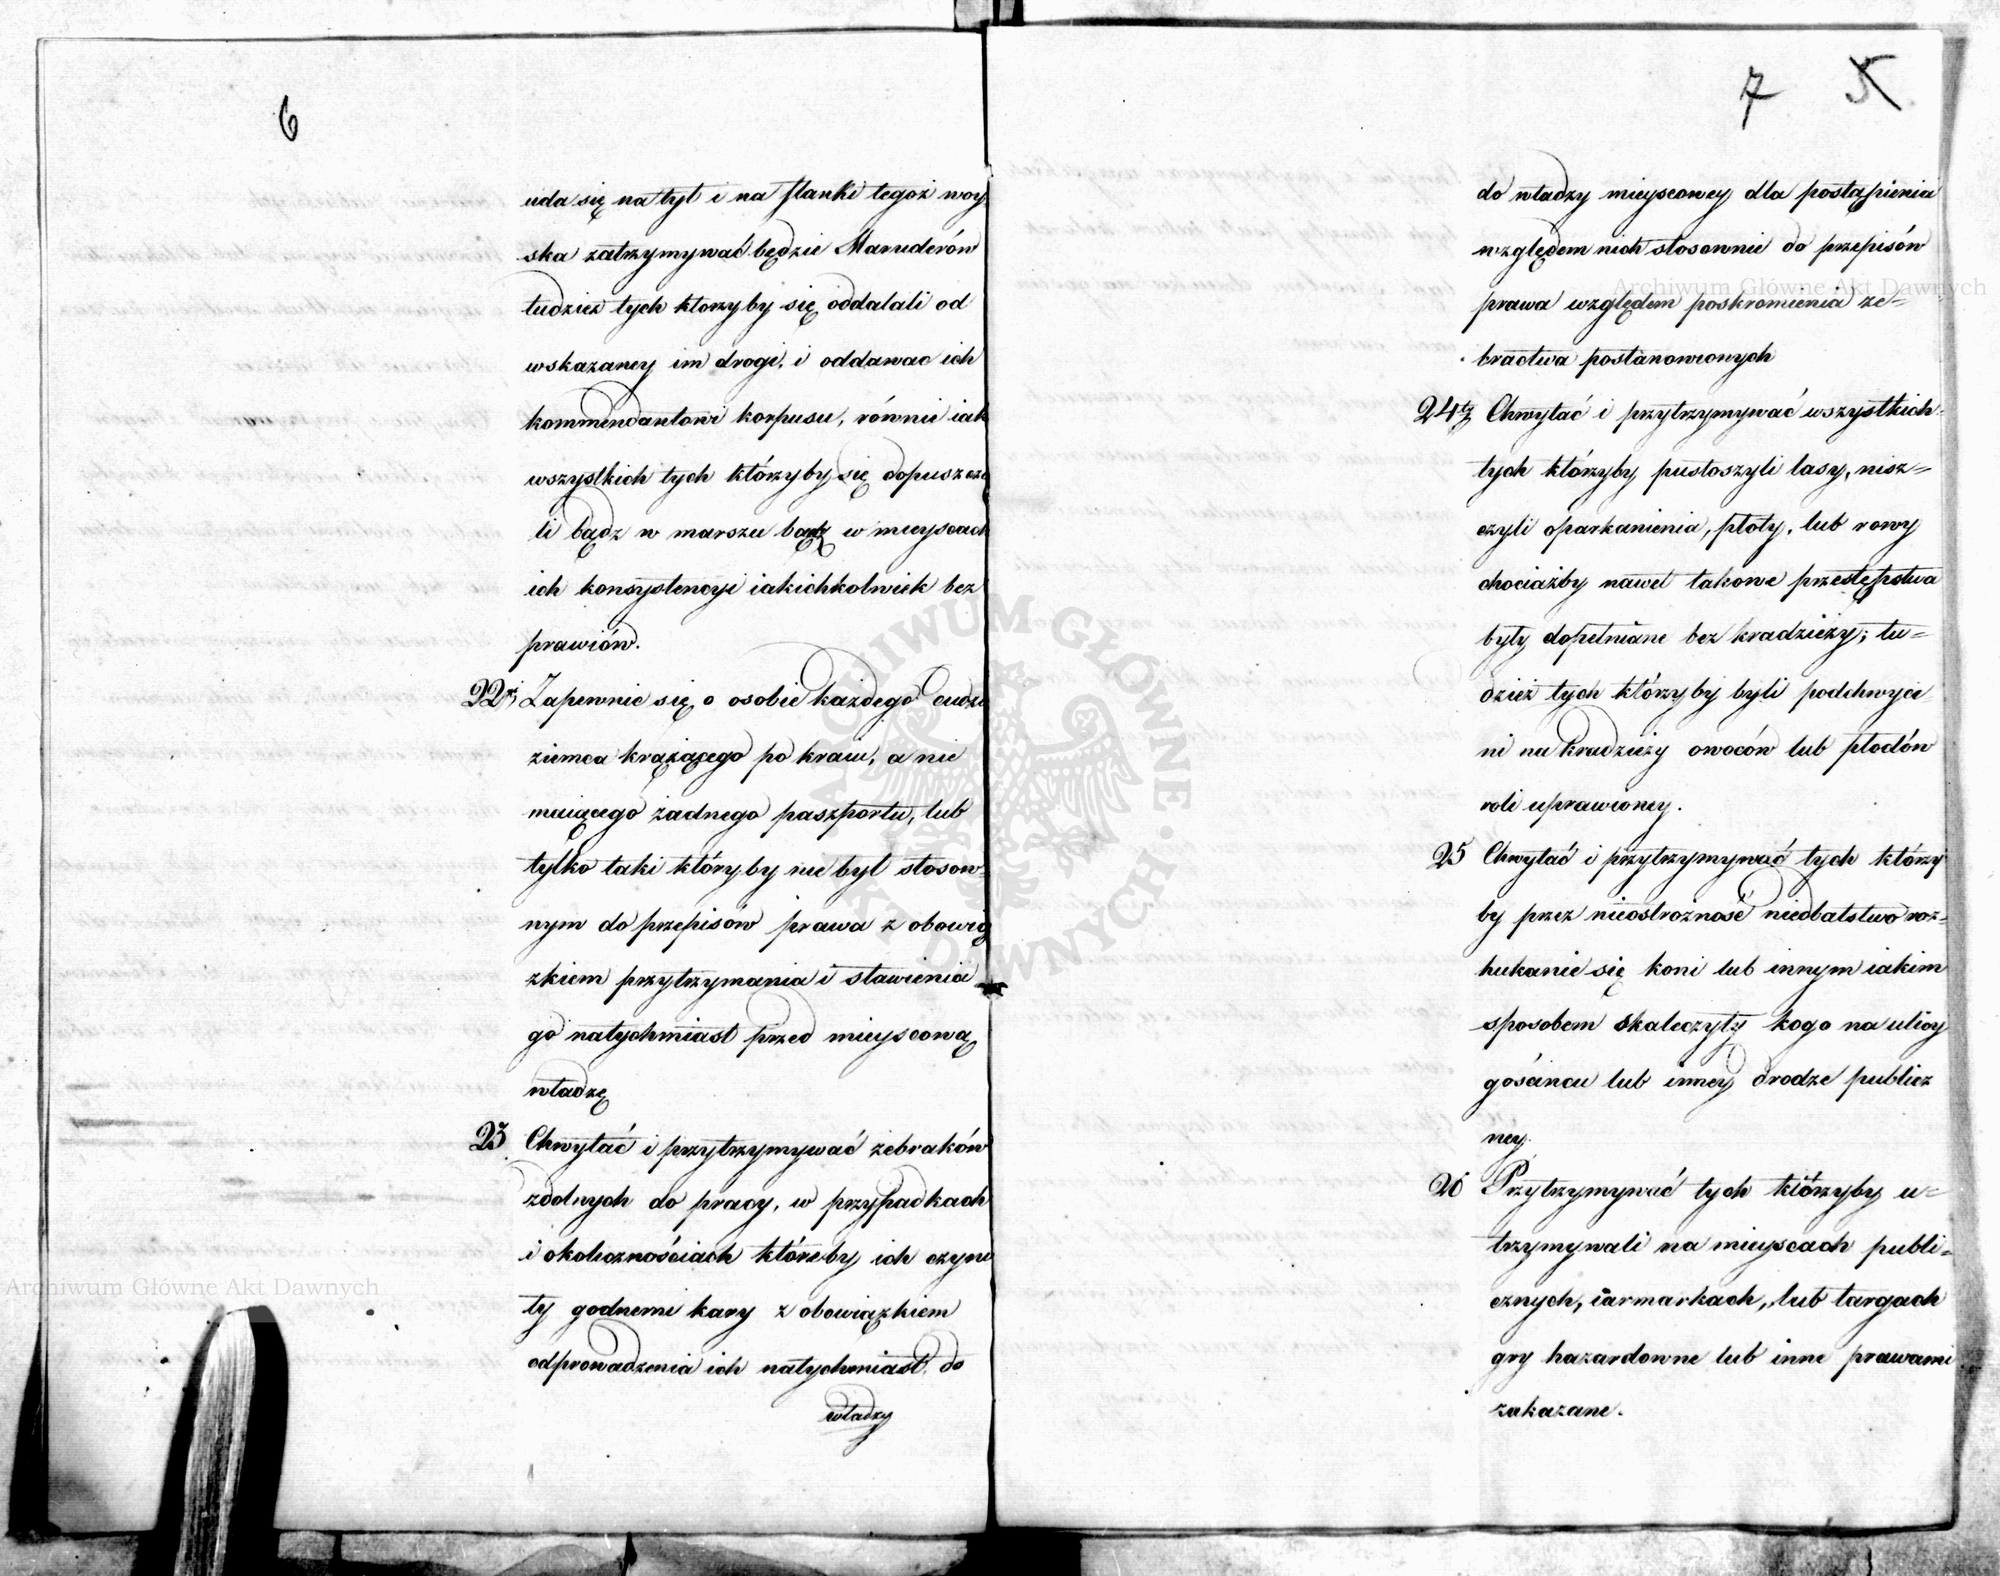 6
uda się na tył i na flanki tegoż woy
ska zatrzymywać będzie Maruderów
tudzież tych ktorzyby się oddalali od
wskazaney im drogi, i oddawac ich
kommendantowi korpusu, równie iak
wszystkich tych którzyby się dopuszcza
li bądz w marszu bądz w mieyscach
ich konsystencyi iakichkolwiek bez
prawiów.
22 Zapewnic się o osobie każdego cudzo
ziemca krążącego po kraiu, a nie
maiącego żadnego paszportu, lub
tylko taki któryby nie był stosow-
nym do przepisów prawa z obowią
zkiem przytrzymania i stawienia
go natychmiast przed mieyscową
władzę
23 Chwytać i przytrzymywać żebraków
zdolnych do pracy, w przypadkach
i okolicznościach któreby ich czyni
ły godnemi kary z obowiązkiem
odprowadzenia ich natychmiast do
władzy
7 5
do władzy mieyscowey dla postąpienia
względem nich stosownie do przepisów
prawa względem poskromienia że-
bractwa postanowionych
24 Chwytać i przytrzymywać wszystkich
tych którzyby pustoszyli lasy, nisz-
czyli oparkanienia, płoty, lub rowy
chociażby nawet takowe przestępstwa
były dopełniane bez kradzieży; tu-
dzież tych którzyby byli podchwyce-
ni na kradzieży owoców lub płodów
roli uprawioney.
25 Chwytać i przytrzymywać tych którzy
by przez nieostrożność niedbalstwo roz-
hukanie się koni lub innym iakim
sposobem skaleczyły kogo na ulicy
gościncu lub inney drodze publicz
ney.
26 Przytrzymywać tych którzyby u-
trzymywali na mieyscach publi-
cznych, iarmarkach, lub targach
gry hazardowne lub inne prawami
zakazane.
Archiwum Główne Akt Dawnych
Archiwum Główne Akt Dawnych
Archiwum Główne Akt Dawnych
ARCHIWUM GŁÓWNE AKT DAWNYCH